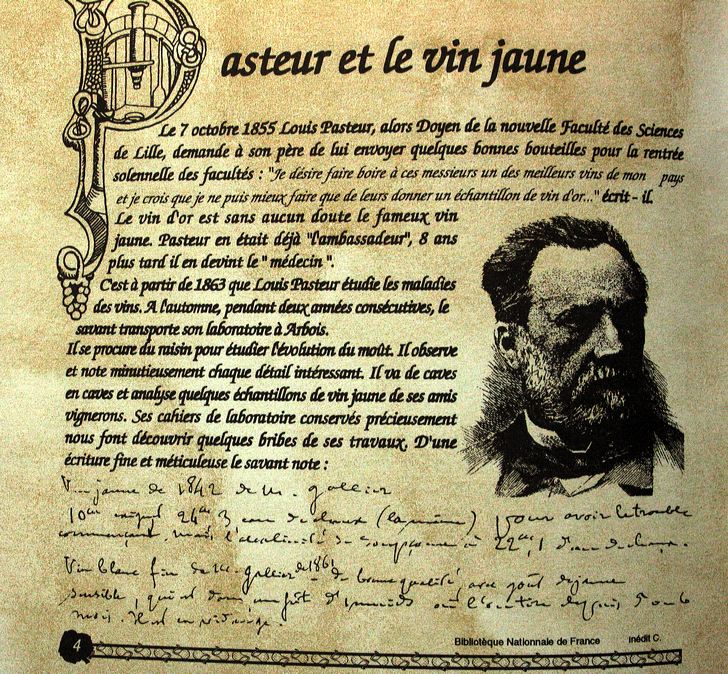 Pasteur et le vin jaune
Le 7 octobre 1855 Louis Pasteur, alors Doyen de la nouvelle Faculté des Sciences
de Lille, demande à son père de lui envoyer quelques bonnes bouteilles pour la rentrée
solennelle des facultés : "Je désire faire boire à ces messieurs un des meilleurs vins de mon pays
et je crois que je ne puis mieux faire que de leurs donner un échantillon de vin d'or..." écrit - il.
Le vin d'or est sans aucun doute le fameux vin
jaune. Pasteur en était déjà "l'ambassadeur", 8 ans
plus tard il en devint le " médecin ".
C'est à partir de 1863 que Louis Pasteur étudie les maladies
des vins. A l'automne, pendant deux années consécutives, le
savant transporte son laboratoire à Arbois.
Il se procure du raisin pour étudier l'évolution du moût. Il observe
et note minutieusement chaque détail intéressant. Il va de caves
en caves et analyse quelques échantillons de vin jaune de ses amis
vignerons. Ses cahiers de laboratoire conservés précieusement
nous font découvrir quelques bribes de ses travaux. D'une
écriture fine et méticuleuse le savant note :
Vin jaune de 1842 de M.
10cc 24cc, 3 eau de chaux pour avoir le trouble
commençant, mais 22cc, 1 d'eau de chaux.
Vin blanc fin de de 1861 de bonne qualité avec goût de jaune
sensible, depuis 5 ou 6
mois. Il
4
Bibliotèque Nationnale de France
inédit C.